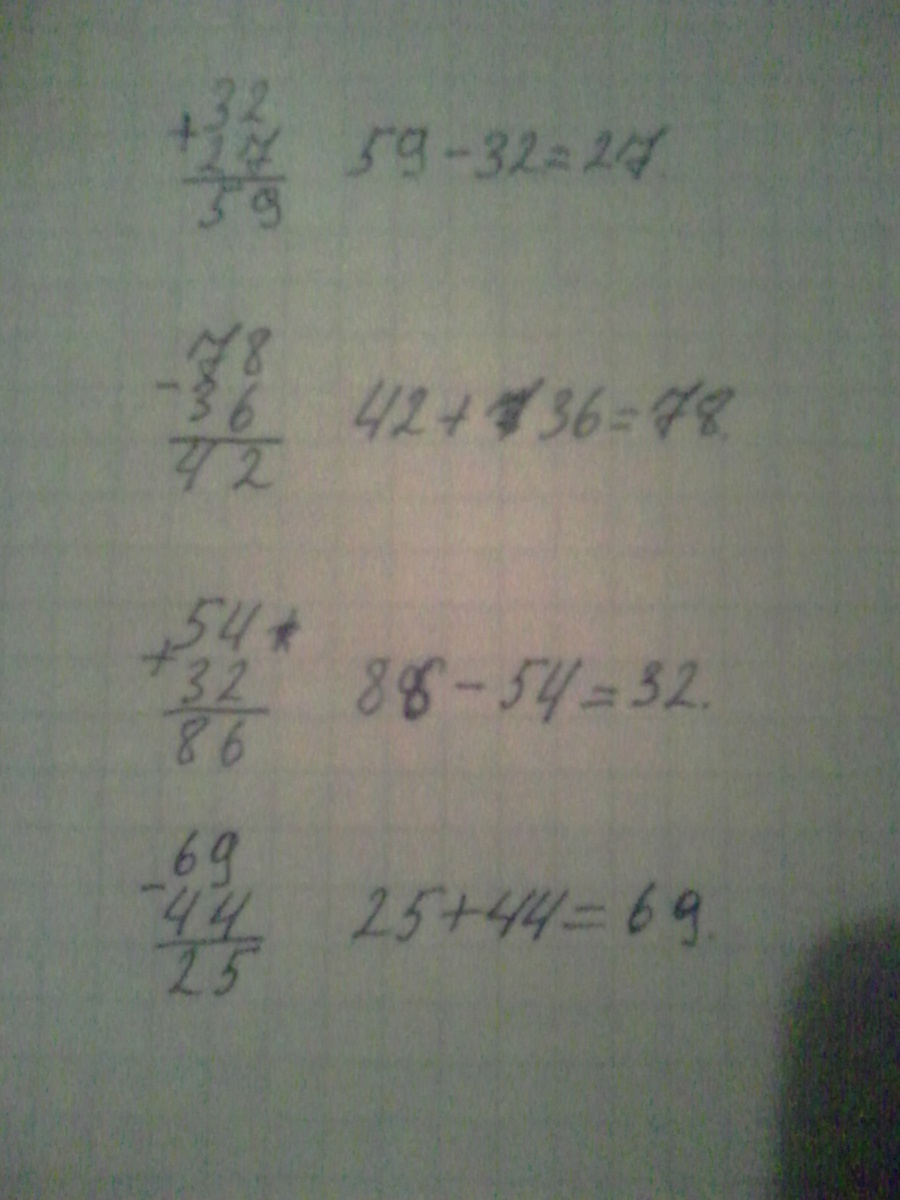 32
+
27 59-32=27.
59
78
-
36 42+36=78.
42
54
+
32 86-54=32.
86
69
-
44 25+44=69.
25